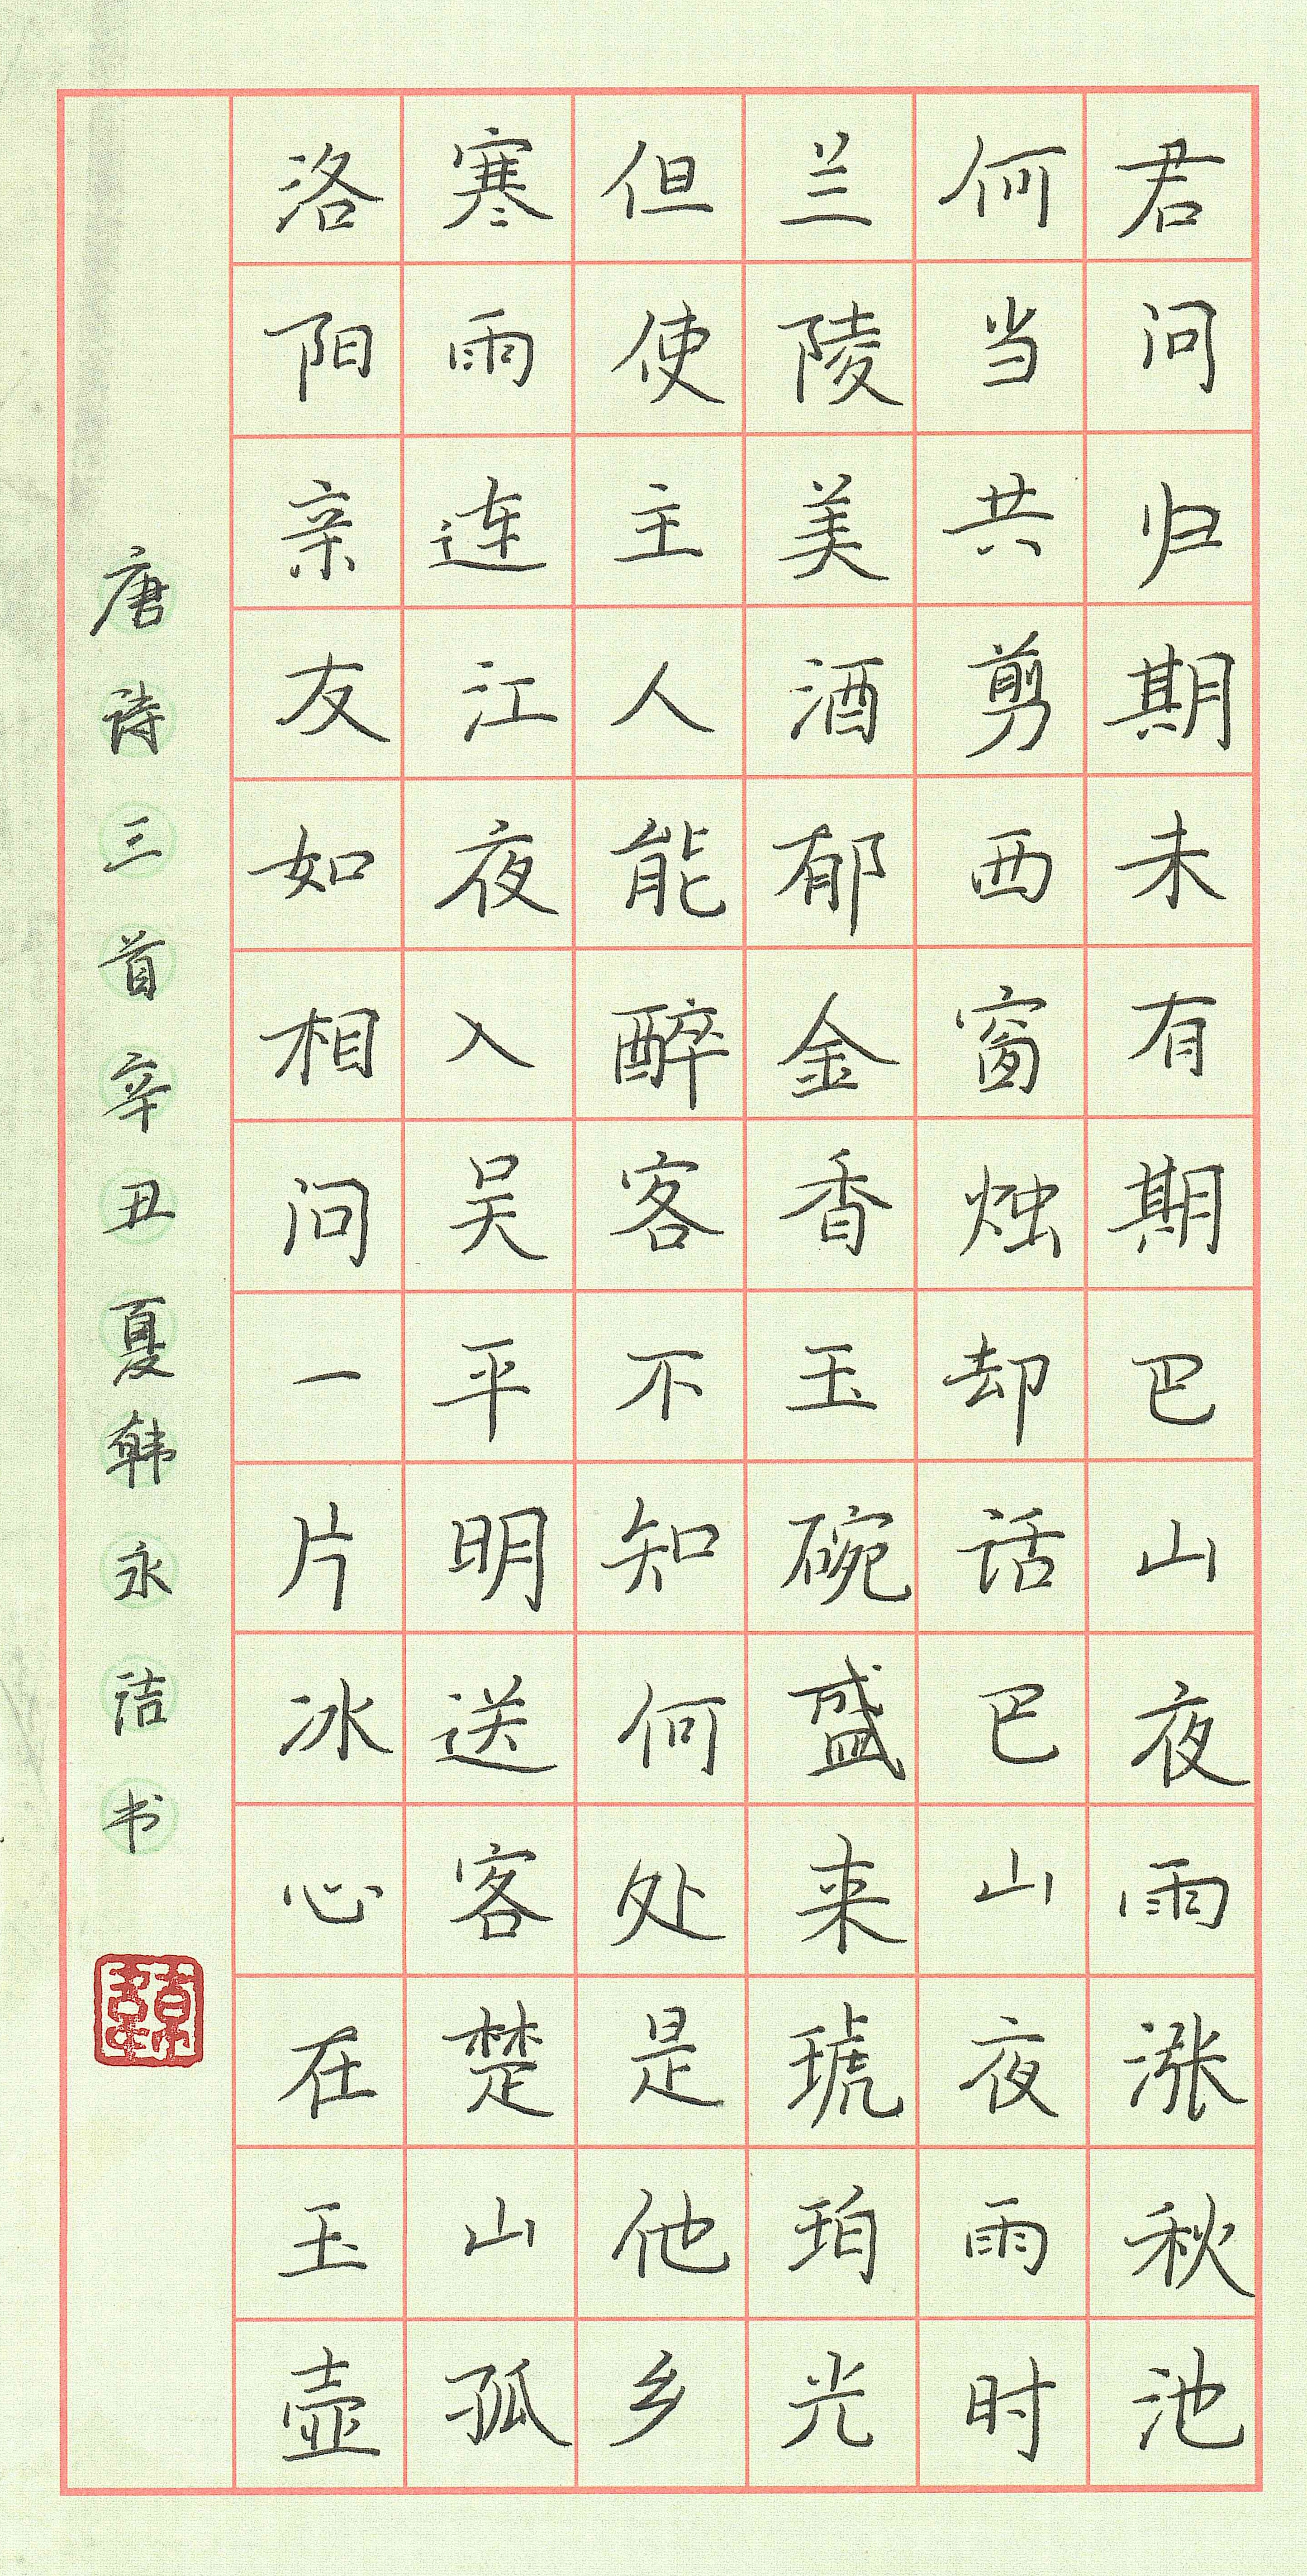 君问归期未有期巴山夜雨涨秋池
何当共剪西窗烛却话巴山夜雨时
兰陵美酒郁金香玉碗盛来琥珀光
但使主人能醉客不知何处是他乡
寒雨连江夜入吴平明送客楚山孤
洛阳亲友如相问一片冰心在玉壶
唐诗三首辛丑夏韩永洁书